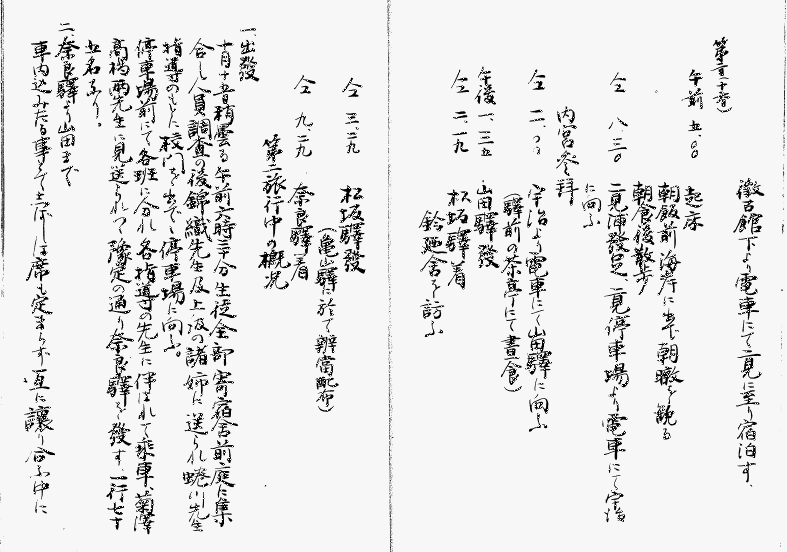 徴古館下より電車にて二見に至り宿泊す、
第二日(十一日)
午前 五、〇〇 起床
朝飯前海岸に出で朝暾を観る
朝食後散歩
仝 八、三〇 二見浦發足、二見停車場より電車にて宇治
に向ふ
内宮参拝
仝 一一、〇〇 宇治より電車にて山田驛に向ふ
(驛前の茶亭にて晝食)
午後 一、三五 山田驛發
仝 二、一九 松坂驛着
鈴廼舎を訪ふ
仝 三、二九 松坂驛發
(亀山驛に於て辨當配布)
仝 九、二九 奈良驛着
第二 旅行中の概況
一、出發
十月十一日稍曇る午前六時三十分生徒全部寄宿舎前庭に集
合し人員調査の後錦織先生及上級の諸姉に送られ蜷川先生
指導のもとに校門を出でゝ停車場に向ふ。
停車場前にて各班に分れ各指導の先生に伴はれて乗車、菊澤
高橋両先生に見送られつゝ豫定の通り奈良驛を發す、一行七十
五名なり。
二、奈良驛より山田まで
車内込みたる事とて暫しは席も定まらず互に讓り合ふ中に